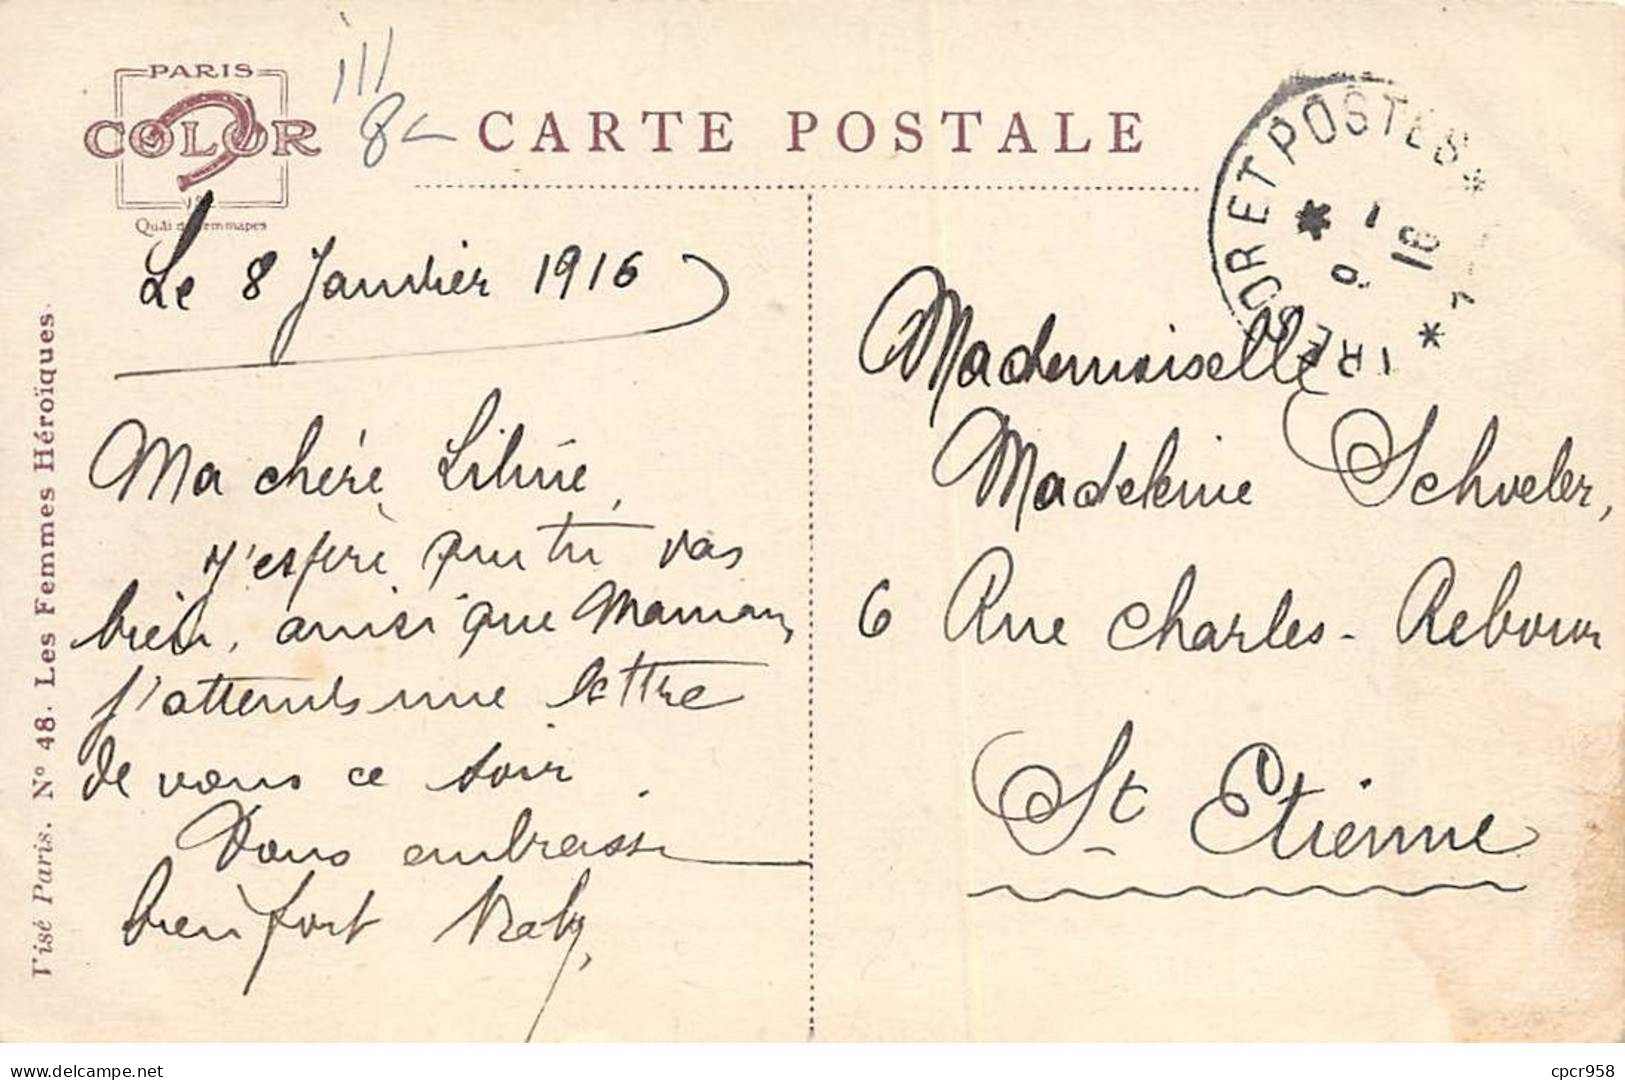 PARIS
COLOR
Quai de Jemmapes
8
CARTE POSTALE
TRESOR ET POSTES
9 1 16
Le 8 Janvier 1916
Ma chère
J'espère que tu vas
bien, ainsi que Maman,
j'attends une lettre
de vous ce soir.
Vous embrasse
bien fort
Mademoiselle
Madeleine Schveler,
6 Rue Charles-Rebour
St Etienne
Visé Paris. N° 48. Les Femmes Héroïques.
cpcr958